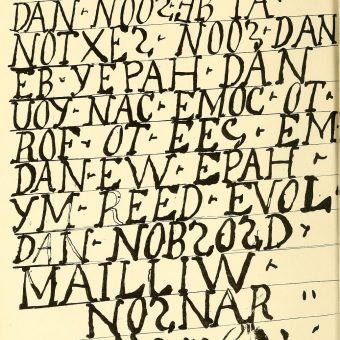 DAN-NOOSEB TA
NOTXES-NOOS-DAN
EB-YEPAH-DAN
UOY-NAC-EMOC-OT-
ROF-OT-EES-EM
DAN-EW-EPAH-
YM-REED-EVOL
DAN-NOBSOSD
MAILLIW-
NOSNAR "